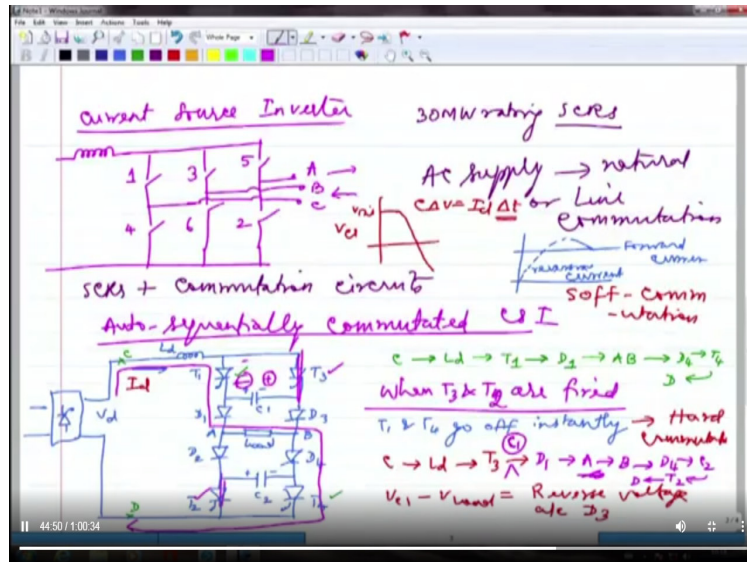 Note1 - Windows Journal
File Edit View Insert Actions Tools Help
Whole Page
Current Source Inverter
30MW rating SCRs
AC supply → natural
or Line
commutation
1 3 5
4 6 2
A →
B ←
C
CΔV = Id Δt
Vc1
Forward
current
reverse
current
SCRs + Commutation circuits
soff-comm
-utation
Auto-sequentially commutated CSI
C → Ld → T1 → D1 → AB → D4 → T4
D ↵
When T3 & T2 are fired
T1 & T4 go off instantly → Hard
Commutate
C1
C → Ld → T3 → D1 → A → B → D4 → C2
D ← T2 ↵
Vc1 - Vload = Reverse voltage
a/c D3
C
Ld
Id
Vd
T1 T3
C1
D1 D3
A Load B
D2 D4
C2
T2
D
44:50 / 1:00:34